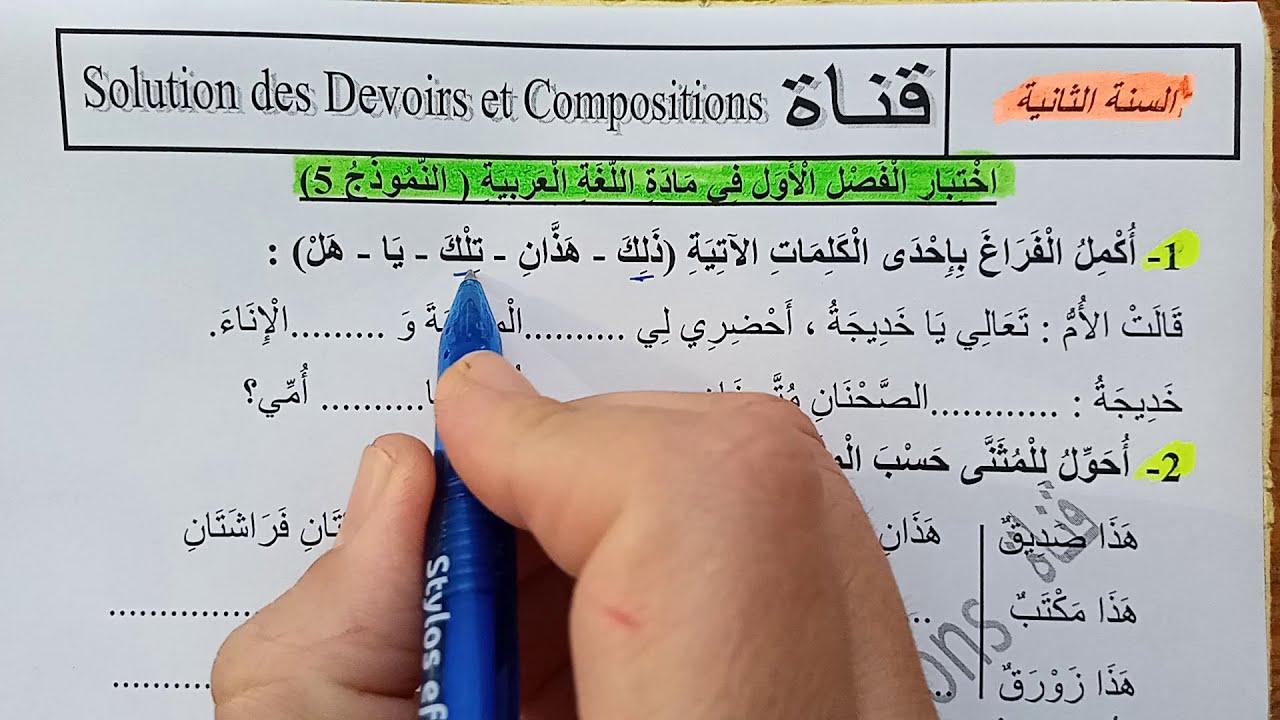 السنة الثانية
قناة Solution des Devoirs et Compositions
اخْتِبَارِ الْفَصْلِ الْأَوَلِ فِي مَادَةِ اللّغَةِ الْعَرَبِيَةِ ( النّمُوذَجُ 5)
1- أُكْمِلُ الْفَرَاغَ بِإِحْدَى الْكَلِمَاتِ الآتِيَةِ (ذَلِكَ - هَذَّانِ - تِلْكَ - يَا - هَلْ) :
قَالَتْ الأُمُّ : تَعَالِي يَا خَدِيجَةُ ، أَحْضِرِي لِي .......... وَ .........الْإِنَاءَ.
خَدِيجَةُ : ............الصَّحْنَانِ .......... أُمِّي؟
2- أُحَوِّلُ لِلْمُثَنَّى حَسْبَ
هَذَا صَدِيقٌ هَذَانِ فَرَاشَتَانِ
هَذَا مَكْتَبٌ ..................
هَذَا زَوْرَقٌ ..................
قناة
ons
Stylos ef